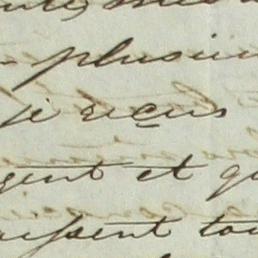 plusieu
je reçus
gent et q
aissent tou